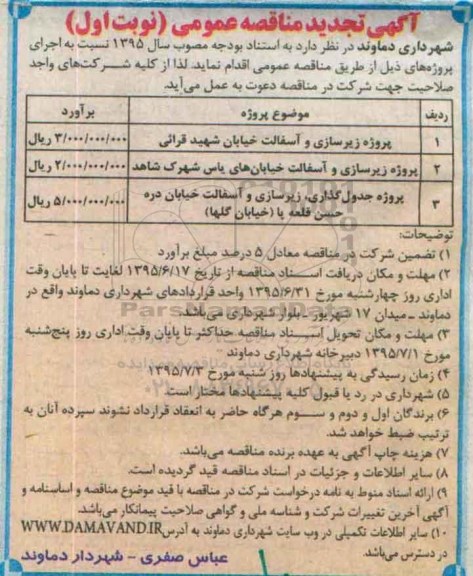 آگهی تجدید مناقصه عمومی (نوبت اول)
شهرداری دماوند در نظر دارد به استناد بودجه مصوب سال ۱۳۹۵ نسبت به اجرای
پروژه‌های ذیل از طریق مناقصه عمومی اقدام نماید. لذا از کلیه شرکت‌های واجد
صلاحیت جهت شرکت در مناقصه دعوت به عمل می‌آید.
ردیف موضوع پروژه برآورد
۱ پروژه زیرسازی و آسفالت خیابان شهید قرائی ۳/۰۰۰/۰۰۰/۰۰۰ ریال
۲ پروژه زیرسازی و آسفالت خیابان‌های یاس شهرک شاهد ۲/۰۰۰/۰۰۰/۰۰۰ ریال
۳ پروژه جدول‌گذاری، زیرسازی و آسفالت خیابان دره ۵/۰۰۰/۰۰۰/۰۰۰ ریال
حسن قلعه پا (خیابان گلها)
توضیحات:
۱) تضمین شرکت در مناقصه معادل ۵ درصد مبلغ برآورد
۲) مهلت و مکان دریافت اسناد مناقصه از تاریخ ۱۳۹۵/۶/۱۷ لغایت تا پایان وقت
اداری روز چهارشنبه مورخ ۱۳۹۵/۶/۳۱ واحد قراردادهای شهرداری دماوند واقع در
دماوند ـ میدان ۱۷ شهریور ـ بلوار شهرداری می‌باشد.
۳) مهلت و مکان تحویل اسناد مناقصه حداکثر تا پایان وقت اداری روز پنج‌شنبه
مورخ ۱۳۹۵/۷/۱ دبیرخانه شهرداری دماوند
۴) زمان رسیدگی به پیشنهادها روز شنبه مورخ ۱۳۹۵/۷/۳
۵) شهرداری در رد یا قبول کلیه پیشنهادها مختار است.
۶) برندگان اول و دوم و سوم هرگاه حاضر به انعقاد قرارداد نشوند سپرده آنان به
ترتیب ضبط خواهد شد.
۷) هزینه چاپ آگهی به عهده برنده مناقصه می‌باشد.
۸) سایر اطلاعات و جزئیات در اسناد مناقصه قید گردیده است.
۹) ارائه اسناد منوط به نامه درخواست شرکت در مناقصه با قید موضوع مناقصه و اساسنامه و
آگهی آخرین تغییرات شرکت و شناسه ملی و گواهی صلاحیت پیمانکار می‌باشد.
۱۰) سایر اطلاعات تکمیلی در وب سایت شهرداری دماوند به آدرس WWW.DAMAVAND.IR
در دسترس می‌باشد.
عباس صفری - شهردار دماوند